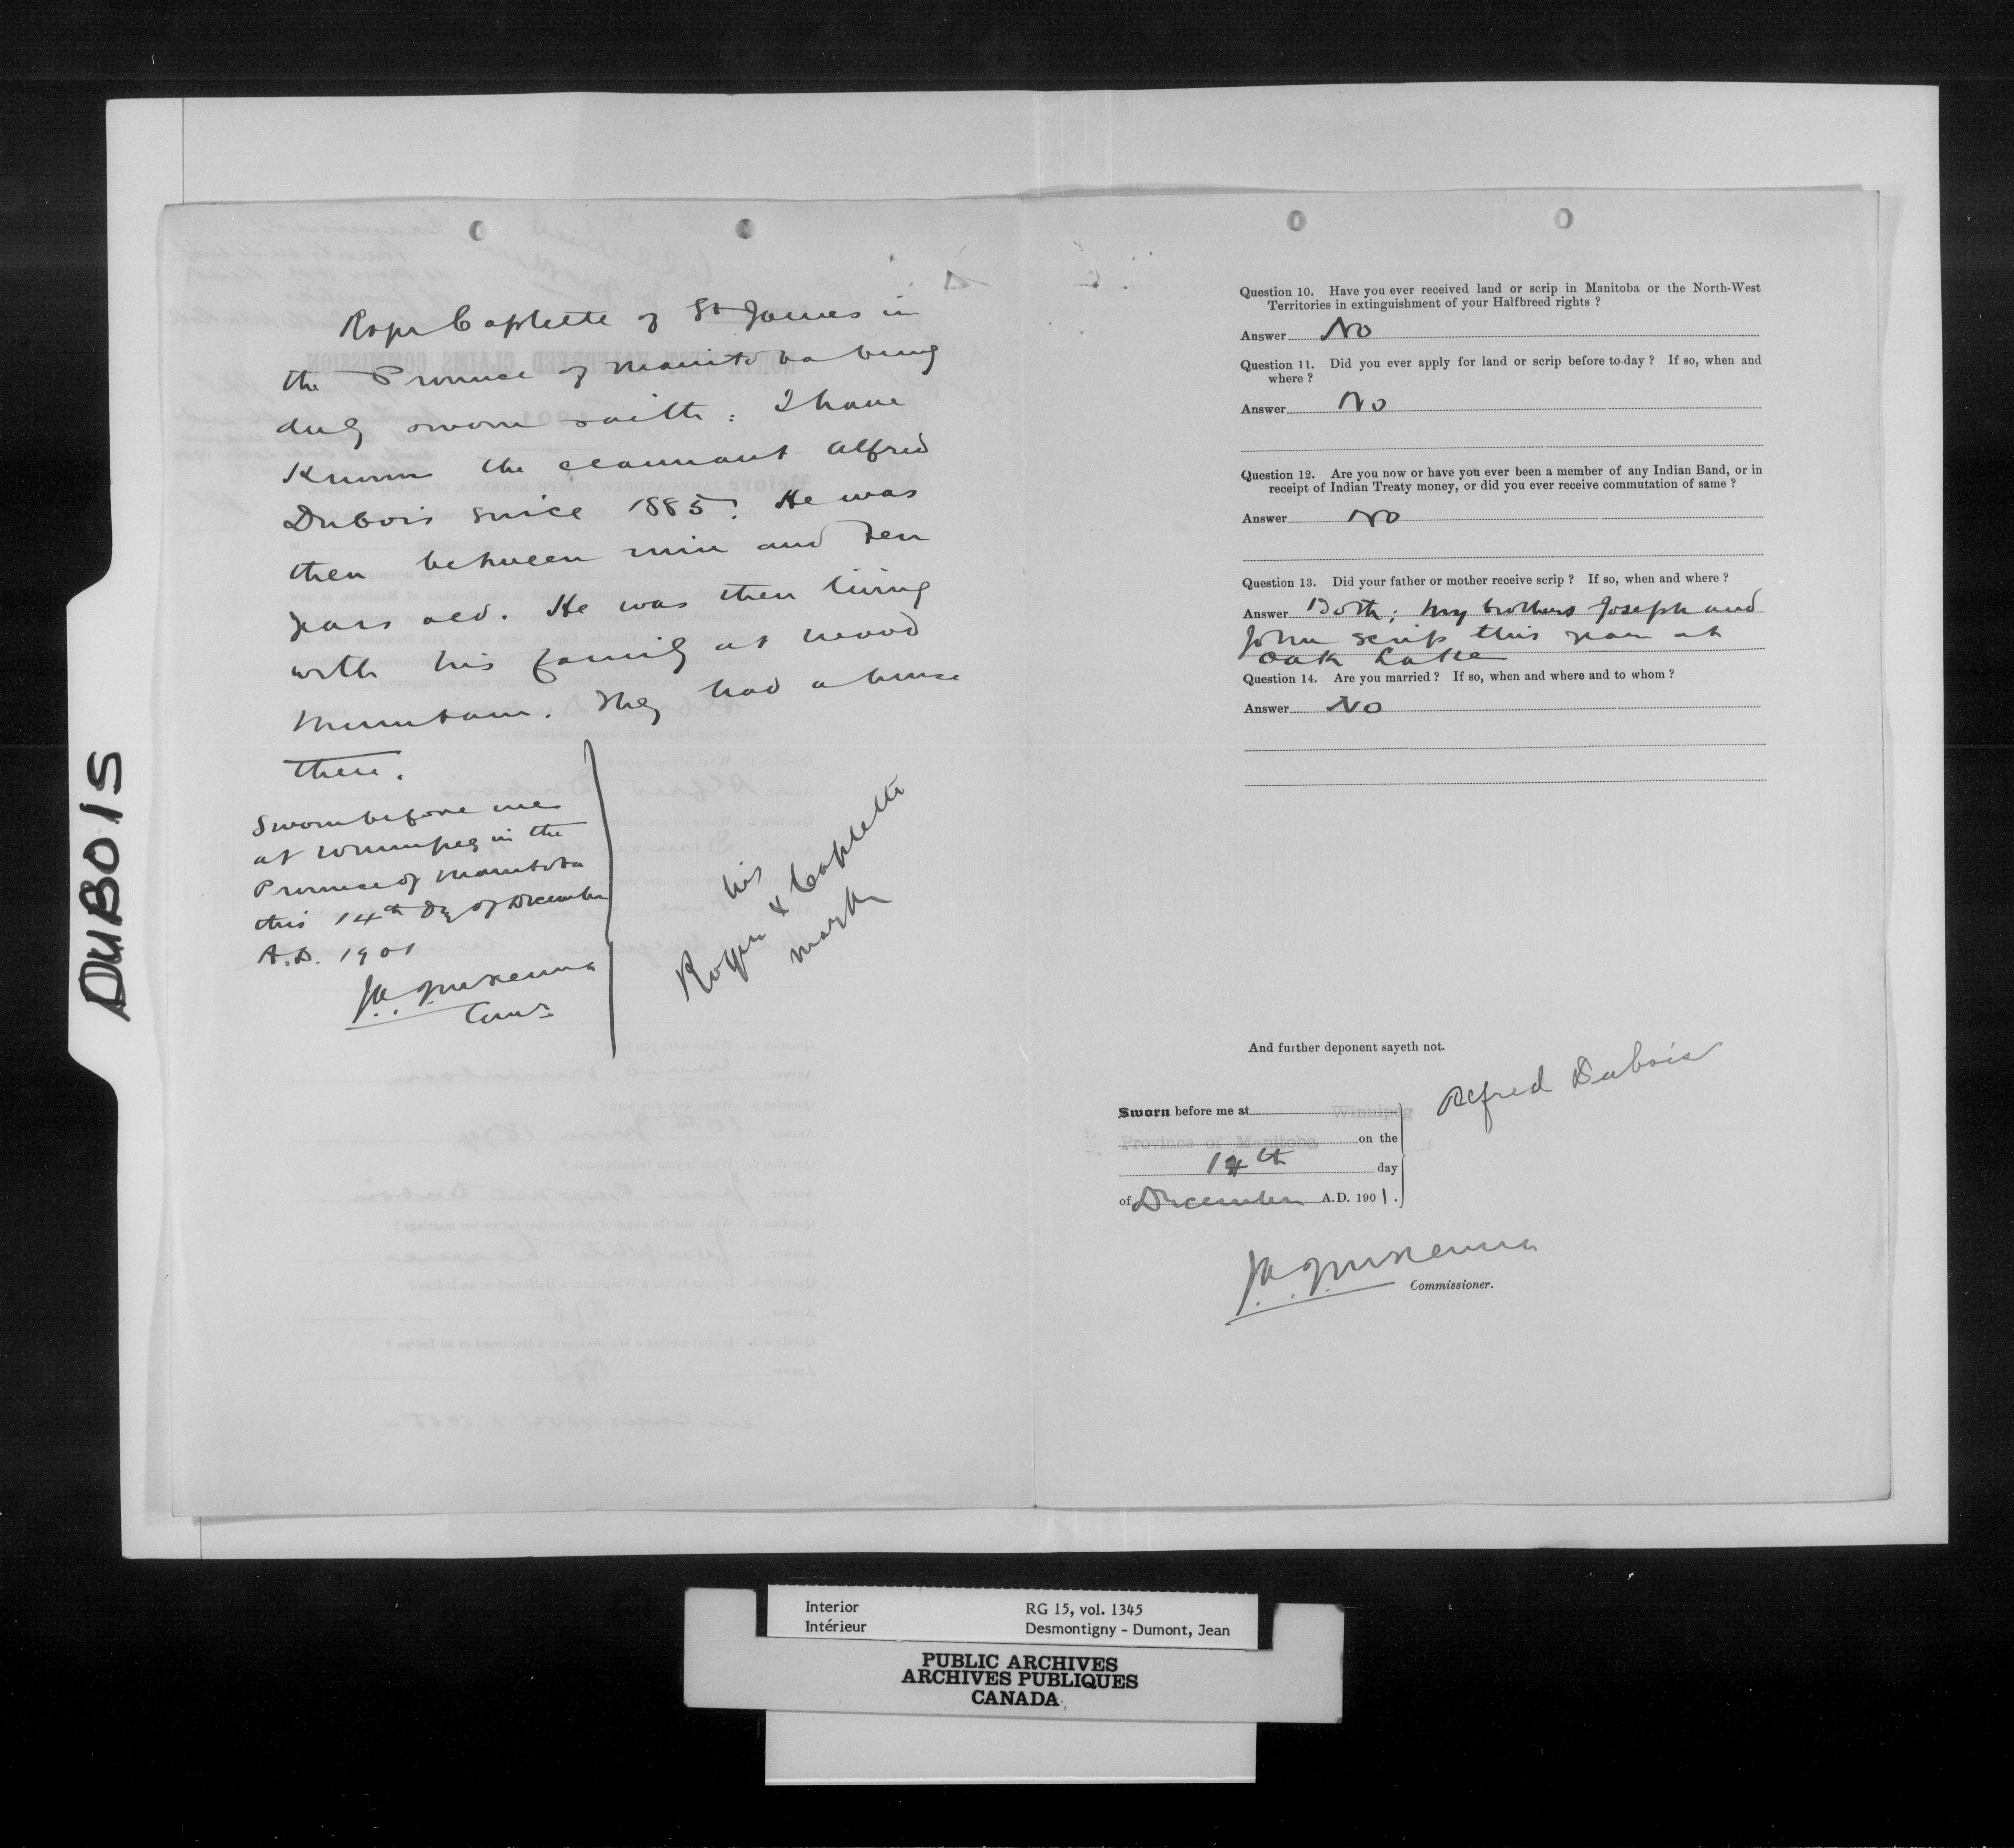 DUBOIS
Roger Coplette of St James in
the Province of Manitoba being
duly sworn saith: I have
Known the claimant Alfred
Dubois since 1885. He was
then between nine and ten
years old. He was then living
with his family at Wood
Mountain. They had a house
there.
Sworn before me
at Winnipeg in the
Province of Manitoba
this 14th Day of December
A.D. 1901
his
Roger x Coplette
mark
Question 10. Have you ever received land or scrip in Manitoba or the North-West
Territories in extinguishment of your Halfbreed rights ?
Answer No
Question 11. Did you ever apply for land or scrip before to-day ? If so, when and
where ?
Answer No
Question 12. Are you now or have you ever been a member of any Indian Band, or in
receipt of Indian Treaty money, or did you ever receive commutation of same ?
Answer No
Question 13. Did your father or mother receive scrip ? If so, when and where ?
Answer Both; My brothers Joseph and
John scrip this year at
Oak Lake
Question 14. Are you married ? If so, when and where and to whom ?
Answer No
And further deponent sayeth not.
Alfred Dubois
Sworn before me at Winnipeg
Province of Manitoba on the
14th day
of December A.D. 1901.
J.A.J. McKenna
Commissioner.
Interior RG 15, vol. 1345
Intérieur Desmontigny - Dumont, Jean
PUBLIC ARCHIVES
ARCHIVES PUBLIQUES
CANADA